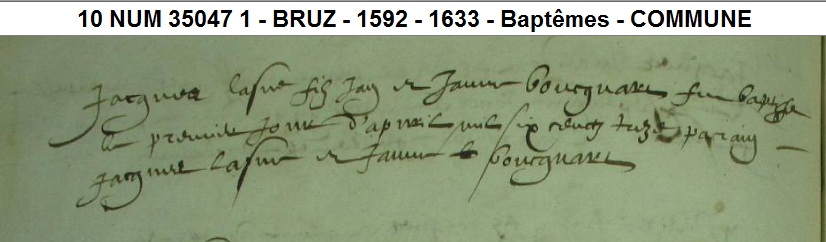 10 NUM 35047 1 - BRUZ - 1592 - 1633 - Baptêmes - COMMUNE
Jacques lasne filz Jan et Janne boucquart fut baptizé
le premier jour d'apvril mil six cents treze parain
Jacques lasne et Janne boucquart